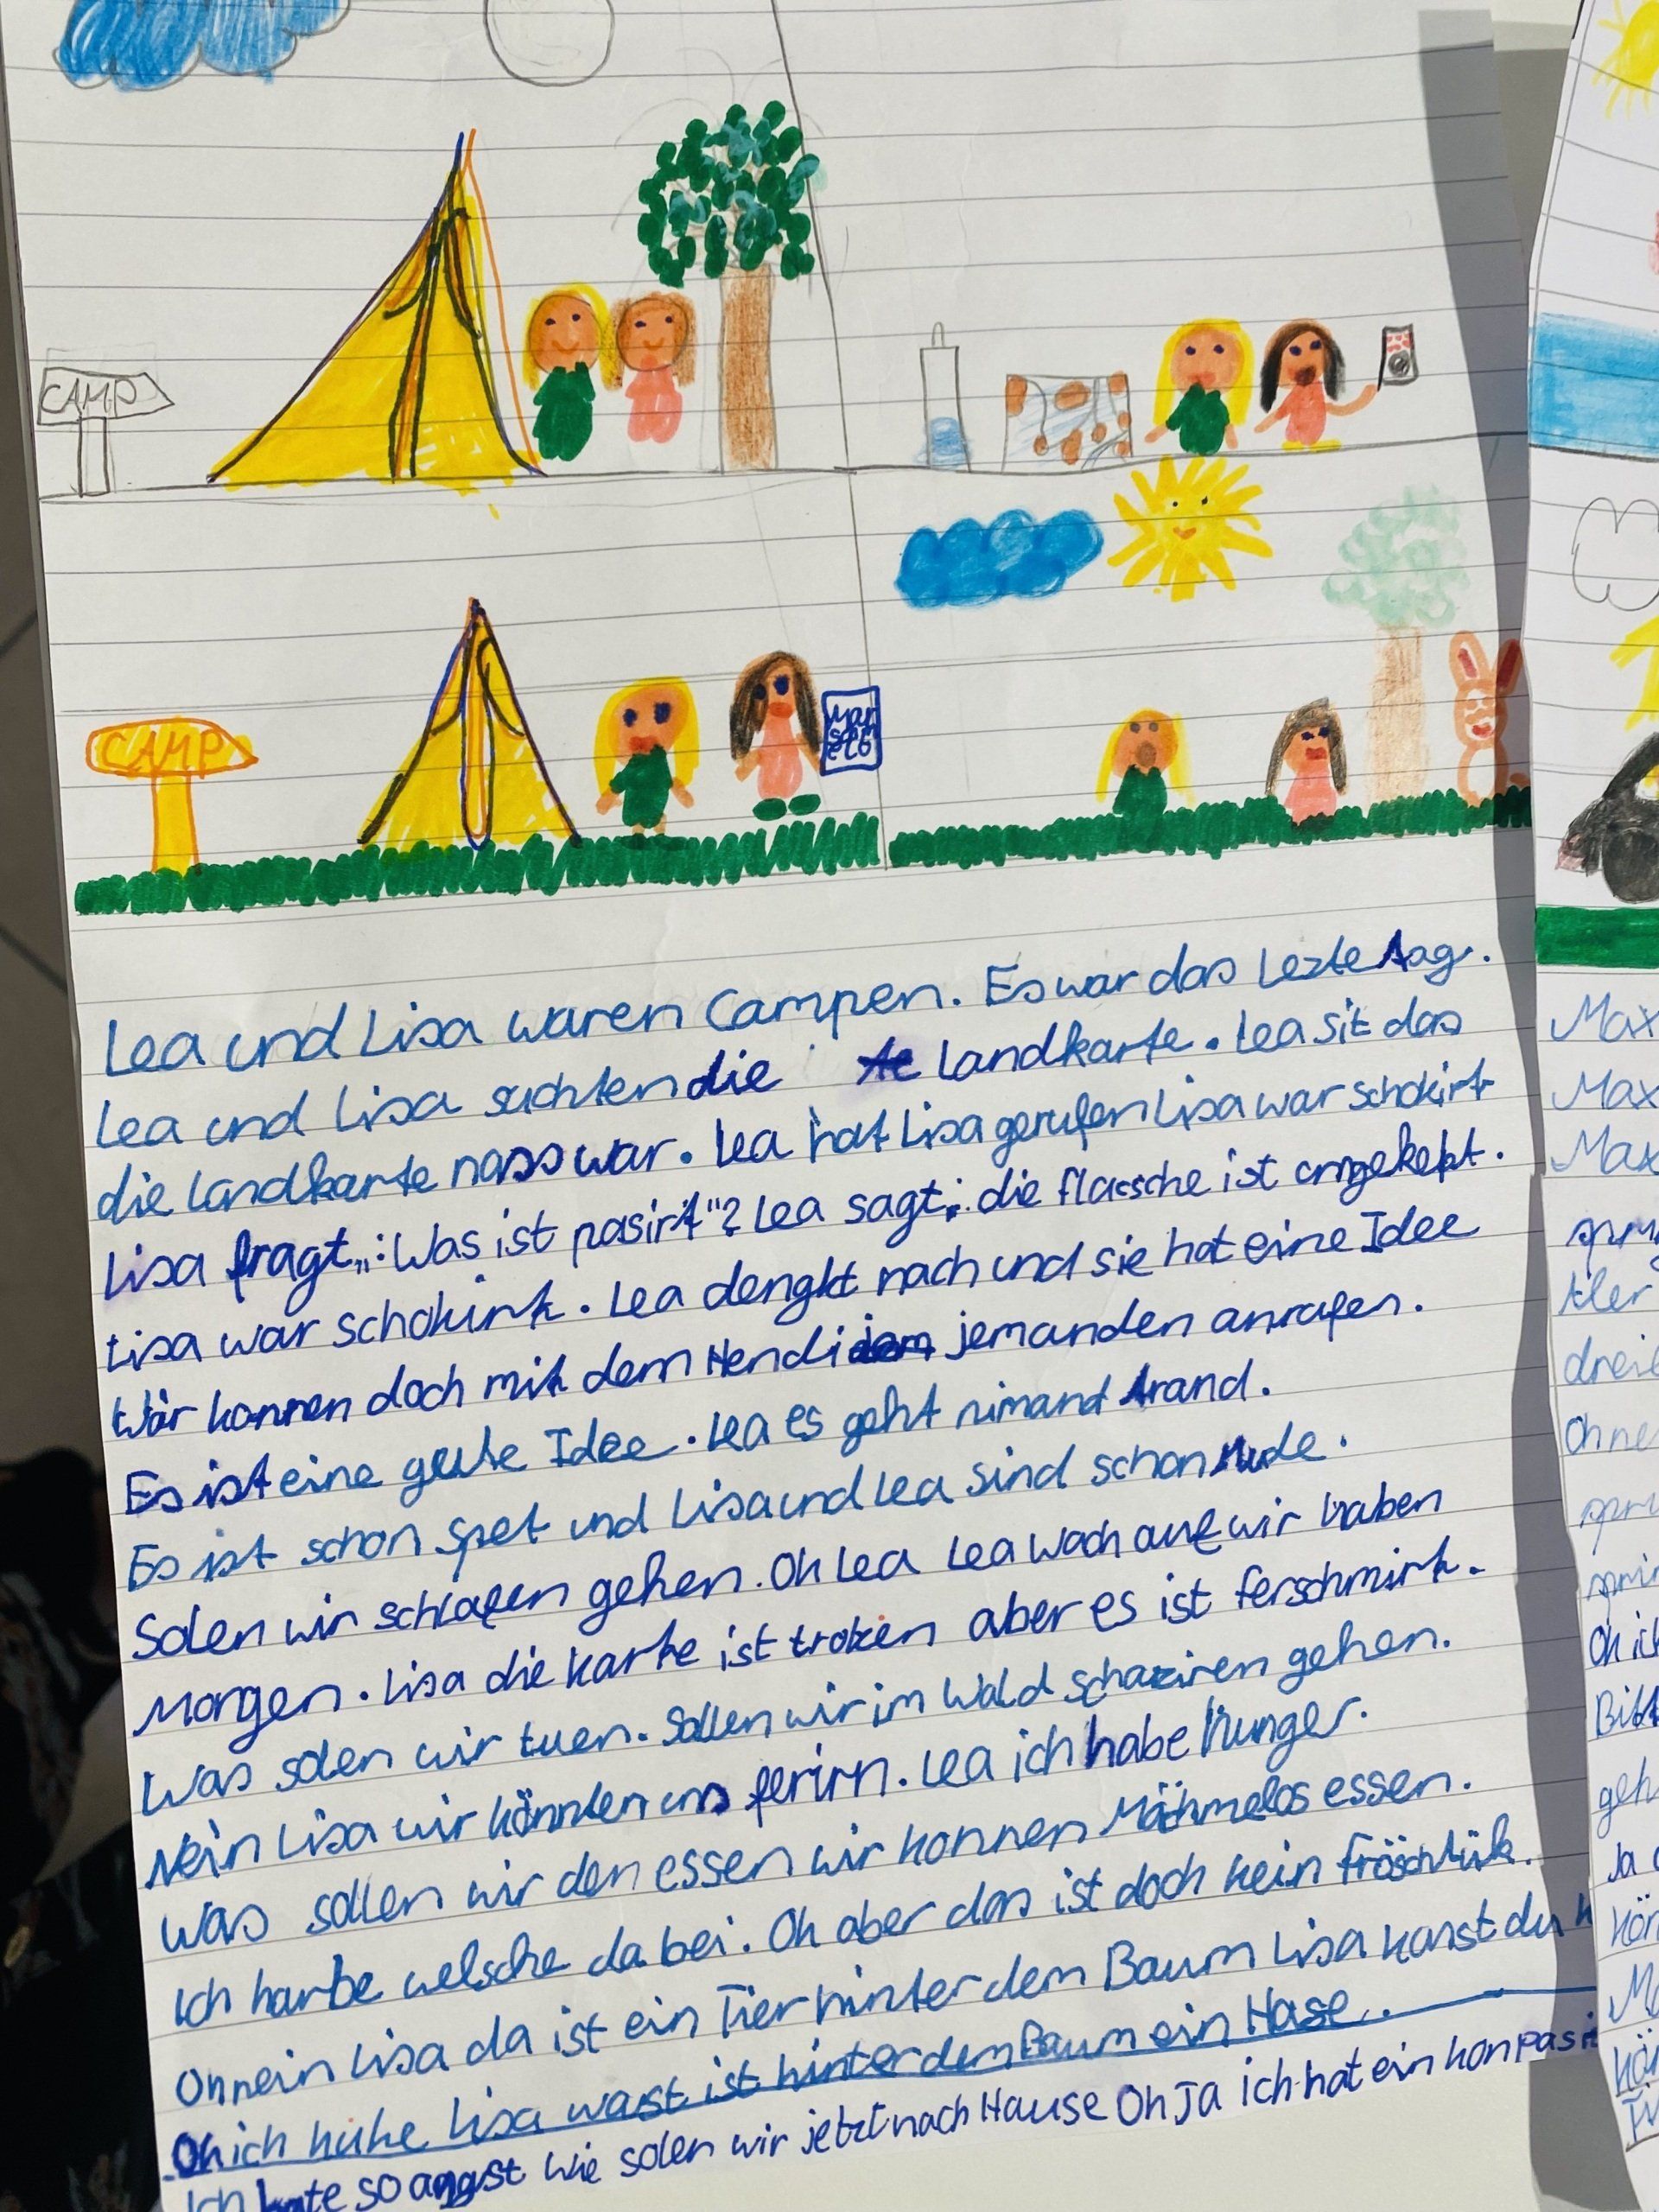 CAMP
CAMP
Lea und Lisa waren Campen. Es war das Lezte Tag.
Lea und Lisa suchten die Landkarte. Lea sit das
die Landkarte nass war. Lea hat Lisa gerufen Lisa war schokirt
Lisa fragt„: Was ist pasirt"? Lea sagt: die flasche ist umgekept.
Lisa war schokirt. Lea dengkt nach und sie hat eine Idee
Wär konnen doch mit dem Hendi jemanden anrufen.
Es ist eine gute Idee. Lea es geht nimand trand.
Es ist schon spet und Lisa und Lea sind schon Mude.
Solen wir schlafen gehen. Oh Lea Lea wach auf wir haben
Morgen. Lisa die karte ist troken aber es ist ferschmirt.
Was solen wir tuen. Sollen wir im Wald schaziren gehen.
Nein Lisa wir könnten uns ferirn. Lea ich habe Hunger.
Was sollen wir den essen wir konnen Mächmelos essen.
Ich habe welsche da bei. Oh aber das ist doch kein fröschtük.
Oh nein Lisa da ist ein Tier hinter dem Baum Lisa kanst du
Oh ich huhe Lisa warst ist hinter dem Baum ein Hase.
Ich hate so angst wie solen wir jetzt nach Hause Oh Ja ich hat ein konpas
Max
Max
Max
Oh ne
Oh ich
Ja